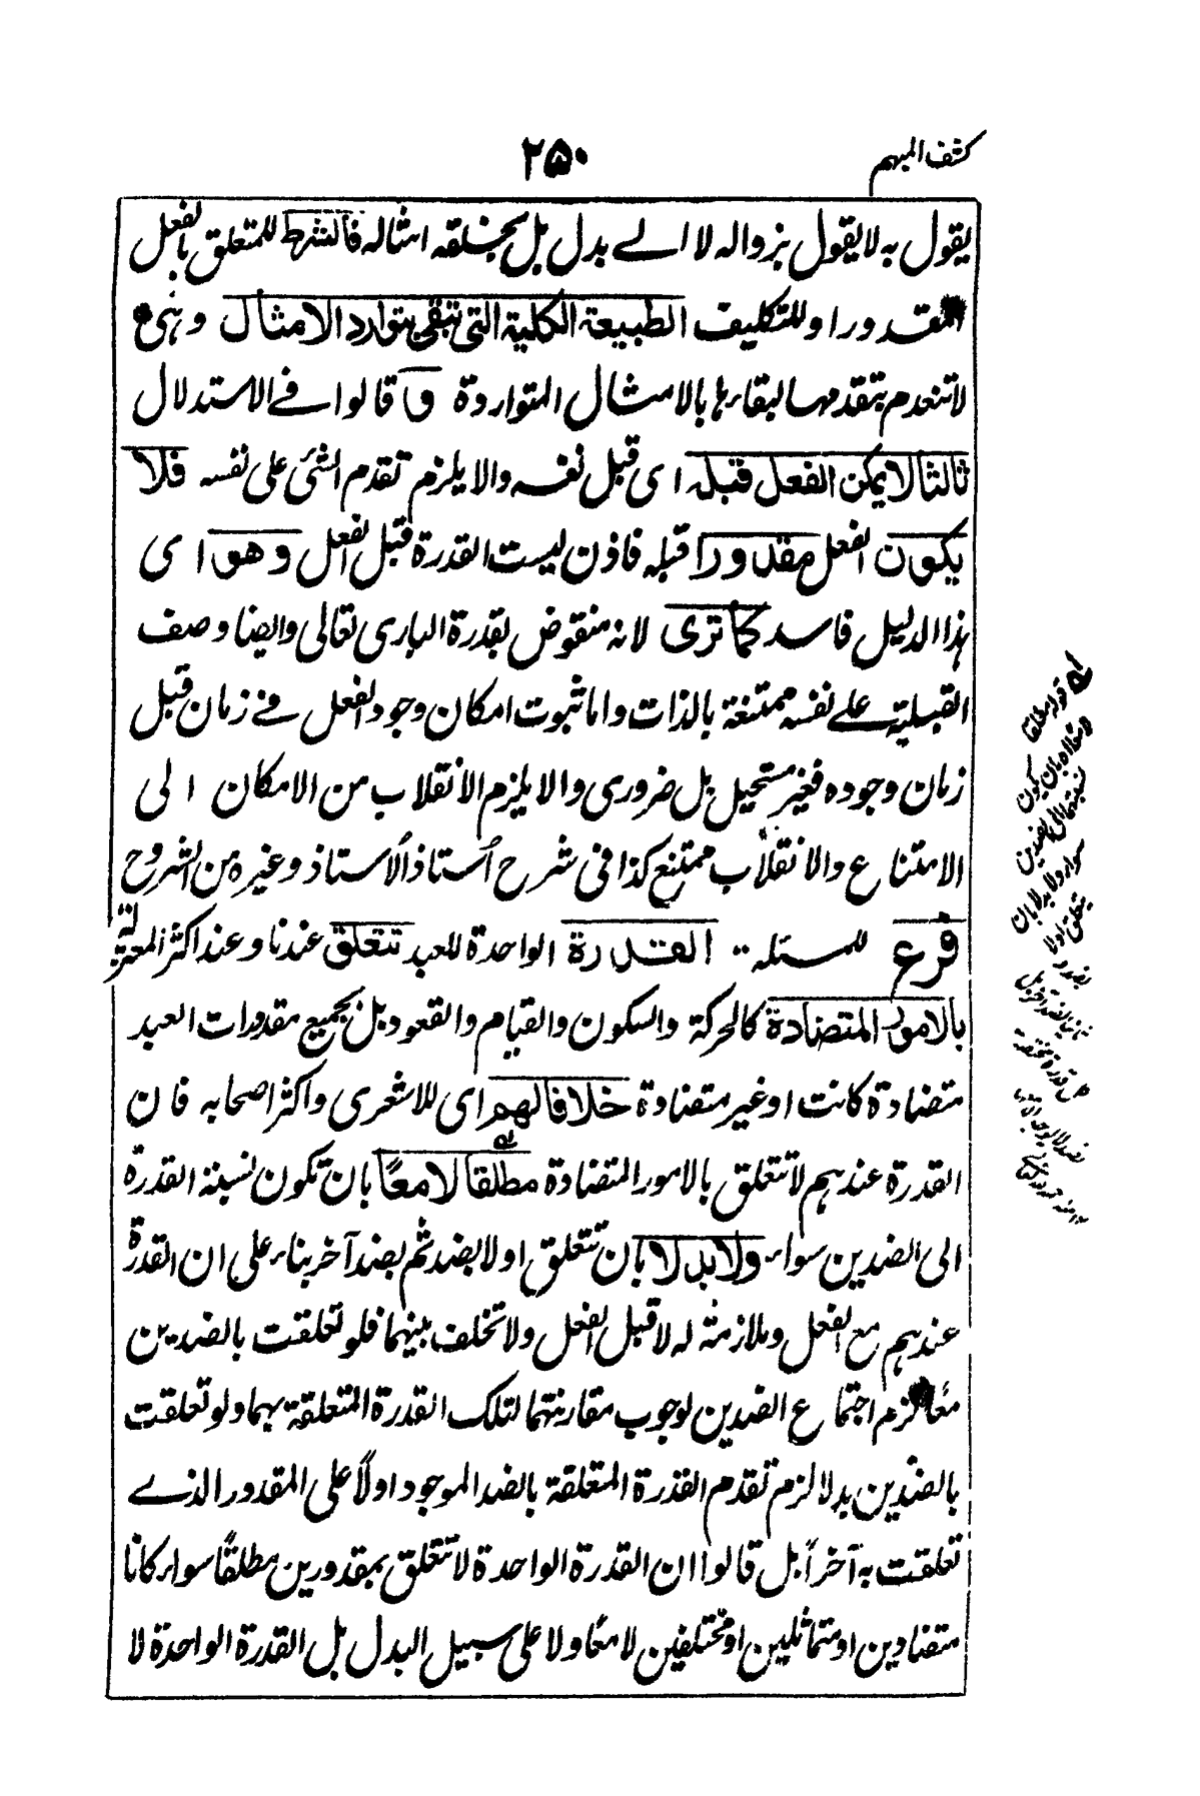 كشف المبهم
٢٥٠
يقول به لا يقول بزواله لا الے بدل بل بخلقه امثاله فالشرط للمتعلق بالفعل
المقدور او للتكليف الطبيعة الكلية التى تبقى بتوارد الامثال وهى
لا تنعدم بتقدمها لبقائها بالامثال المتواردة و قالوا فے الاستدلال
ثالثا لا يمكن الفعل قبله اى قبل نفسه والا يلزم تقدم الشئ على نفسه فلا
يكون الفعل مقدورا قبله فاذن ليست القدرة قبل الفعل وهو اى
هذا الدليل فاسد كما ترى لانه منقوض بقدرة البارى تعالى وايضا وصف
القبلية علے نفسه ممتنعة بالذات واما ثبوت امكان وجود الفعل فے زمان قبل
زمان وجوده فغير مستحيل بل ضرورى والا يلزم الانقلاب من الامكان الى
الامتناع والانقلاب ممتنع كذا فى شرح أستاذ الأستاذ وغيره من الشروح
فرع للمسئلة القدرة الواحدة للعبد تتعلق عندنا وعند اكثر المعتزلة
بالامور المتضادة كالحركة والسكون والقيام والقعود بل بجميع مقدورات العبد
متضادة كانت او غير متضادة خلافا لهم اى للاشعرى واكثر اصحابه فان
القدرة عندهم لا تتعلق بالامور المتضادة مطلقا لا معًا بان تكون نسبة القدرة
الى الضدين سواء ولا بدلا بان تتعلق اولا بضد ثم بضد آخر بناء على ان القدرة
عندهم مع الفعل وملازمة له لا قبل الفعل ولا تخلف بينهما فلو تعلقت بالضدين
معًا لزم اجتماع الضدين لوجوب مقارنتهما لتلك القدرة المتعلقة بهما ولو تعلقت
بالضدين بدلا لزم تقدم القدرة المتعلقة بالضد الموجود اولاً على المقدور الذے
تعلقت به آخراً بل قالوا ان القدرة الواحدة لا تتعلق بمقدورين مطلقًا سواء كانا
متضادين او متماثلين او مختلفين لا معًا ولا على سبيل البدل بل القدرة الواحدة لا
قوله مطلقا
نسبتها الى الضدين
سواء ولا بدلا بان
يتعلق اولا